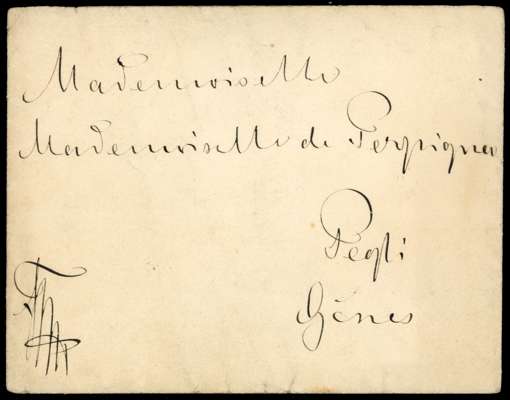 Mademoiselle
Mademoiselle de Perpigna
Pegli
Gênes